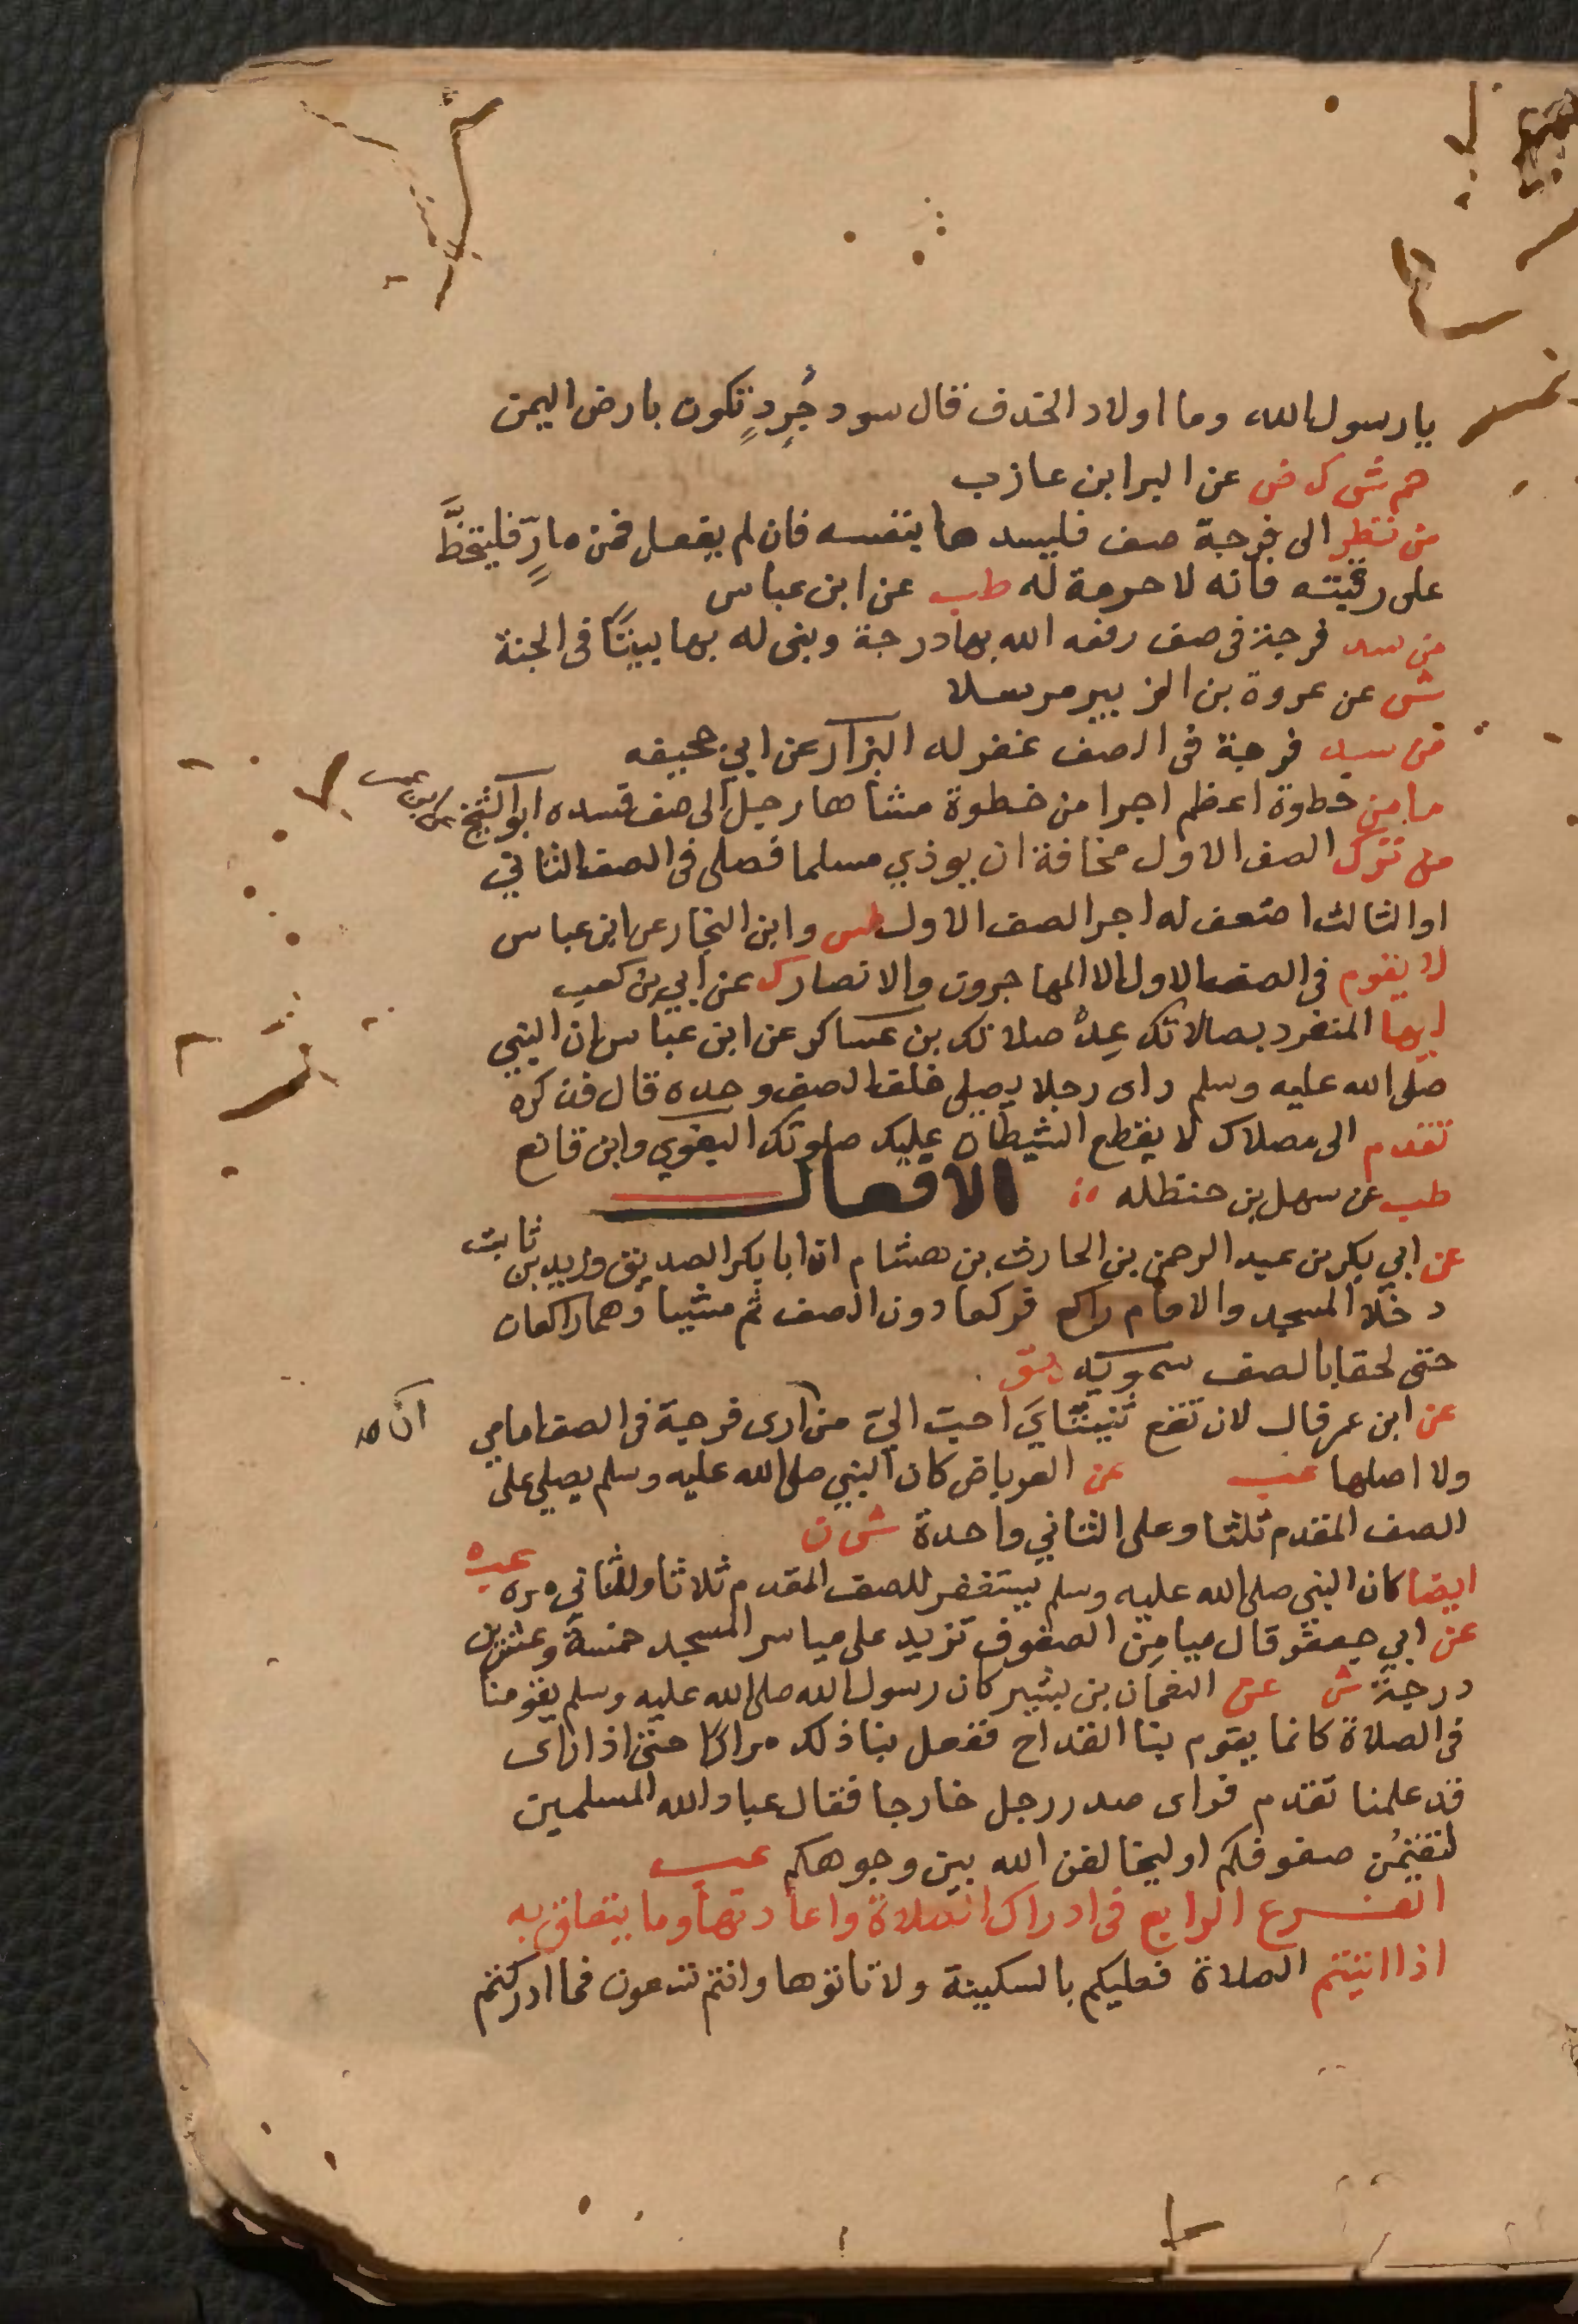 يا رسول الله وما اولاد الحذف قال سود جُردٍ تكون بارض اليمن
هم ش ك ض عن البرا بن عازب
من نظر الى فرجة صف فليسدها بنفسه فان لم يفعل فمن مارٍّ فليتخطَّ
على رقبته فانه لا حرمة له طب عن ابن عباس
من سد فرجة فى صف رفعه الله بها درجة وبنى له بها بيتًا فى الجنة
ش عن عروة بن الزبير مرسلا
من سد فرجة فى الصف غفر له البزار عن ابي جحيفه
ما من خطوة اعظم اجرا من خطوة مشاها رجل الى صف فسده ابو الشيخ عن ابن عمر
من ترك الصف الاول مخافة ان يوذي مسلما فصلى فى الصف الثاني
او الثالث اضعف له اجر الصف الاول طس وابن النجار عن ابن عباس
لا يقوم فى الصف الاول الا المهاجرون والانصار ك عن ابي بن كعب
ايها المنفرد بصلاتك عِدْ صلاتك بن عساكر عن ابن عباس ان النبي
صلى الله عليه وسلم راى رجلا يصلى خلف الصف وحده قال فذكره
تقدم الى مصلاك لا يقطع الشيطان عليك صلوتك البغوي وابن قانع
طب عن سهل بن حنظله الافعال
عن ابي بكر بن عبد الرحمن بن الحارث بن هشام ان ابا بكر الصديق وزيد بن ثابت
دخلا المسجد والامام راكع فركعا دون الصف ثم مشيا وهما راكعان
حتى لحقا بالصف سمويه ق
عن ابن عمر قال لان تقع ثنيتايَ احب اليّ من ارى فرجة فى الصف امامي
ان صح
ولا اصلها عب عن العرباض كان النبي صلى الله عليه وسلم يصلي على
الصف المقدم ثلثا وعلى الثاني واحدة ش ن
ايضا كان النبي صلى الله عليه وسلم يستغفر للصف المقدم ثلاثا وللثاني مره عب
عن ابي جعفر قال ميامِن الصفوف تزيد على مياسر المسجد خمسة وعشرين
درجة ش عن النعمان بن بشير كان رسول الله صلى الله عليه وسلم يقومنا
فى الصلاة كانما يقوم بنا القداح ففعل بنا ذلك مرارًا حتى اذا راى
قد علمنا تقدم فراى صدر رجل خارجا فقال عباد الله المسلمين
لتقيمُن صفوفكم او ليخالفن الله بين وجوهكم عب
الفرع الرابع فى ادراك الصلاة واعادتها وما يتعلق به
اذا اتيتم الصلاة فعليكم بالسكينة ولا تاتوها وانتم تسعون فما ادركتم